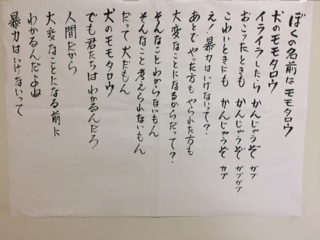 ぼくの名前はモモタロウ
犬のモモタロウ
イライラしたら かんじゃうぞ ガブ
おこったときも かんじゃうぞ ガブガブ
こわいときにも かんじゃうぞ ガブ
え!暴力はいけないって?
あとで やった方も やられた方も
大変なことになるからだって?
そんなことわからないもん
そんなこと考えられないもん
だって 犬だもん
犬のモモタロウ
でも君たちはわかるんだろ
人間だから
大変なことになる前に
わかるんだよね
暴力はいけないって